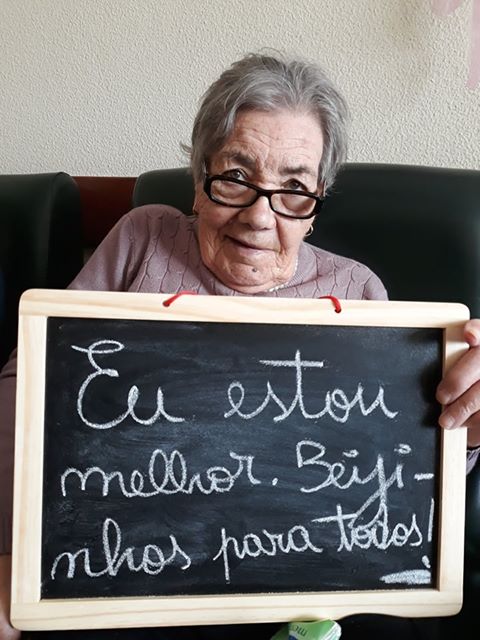 Eu estou
melhor. Beiji-
nhos para todos!